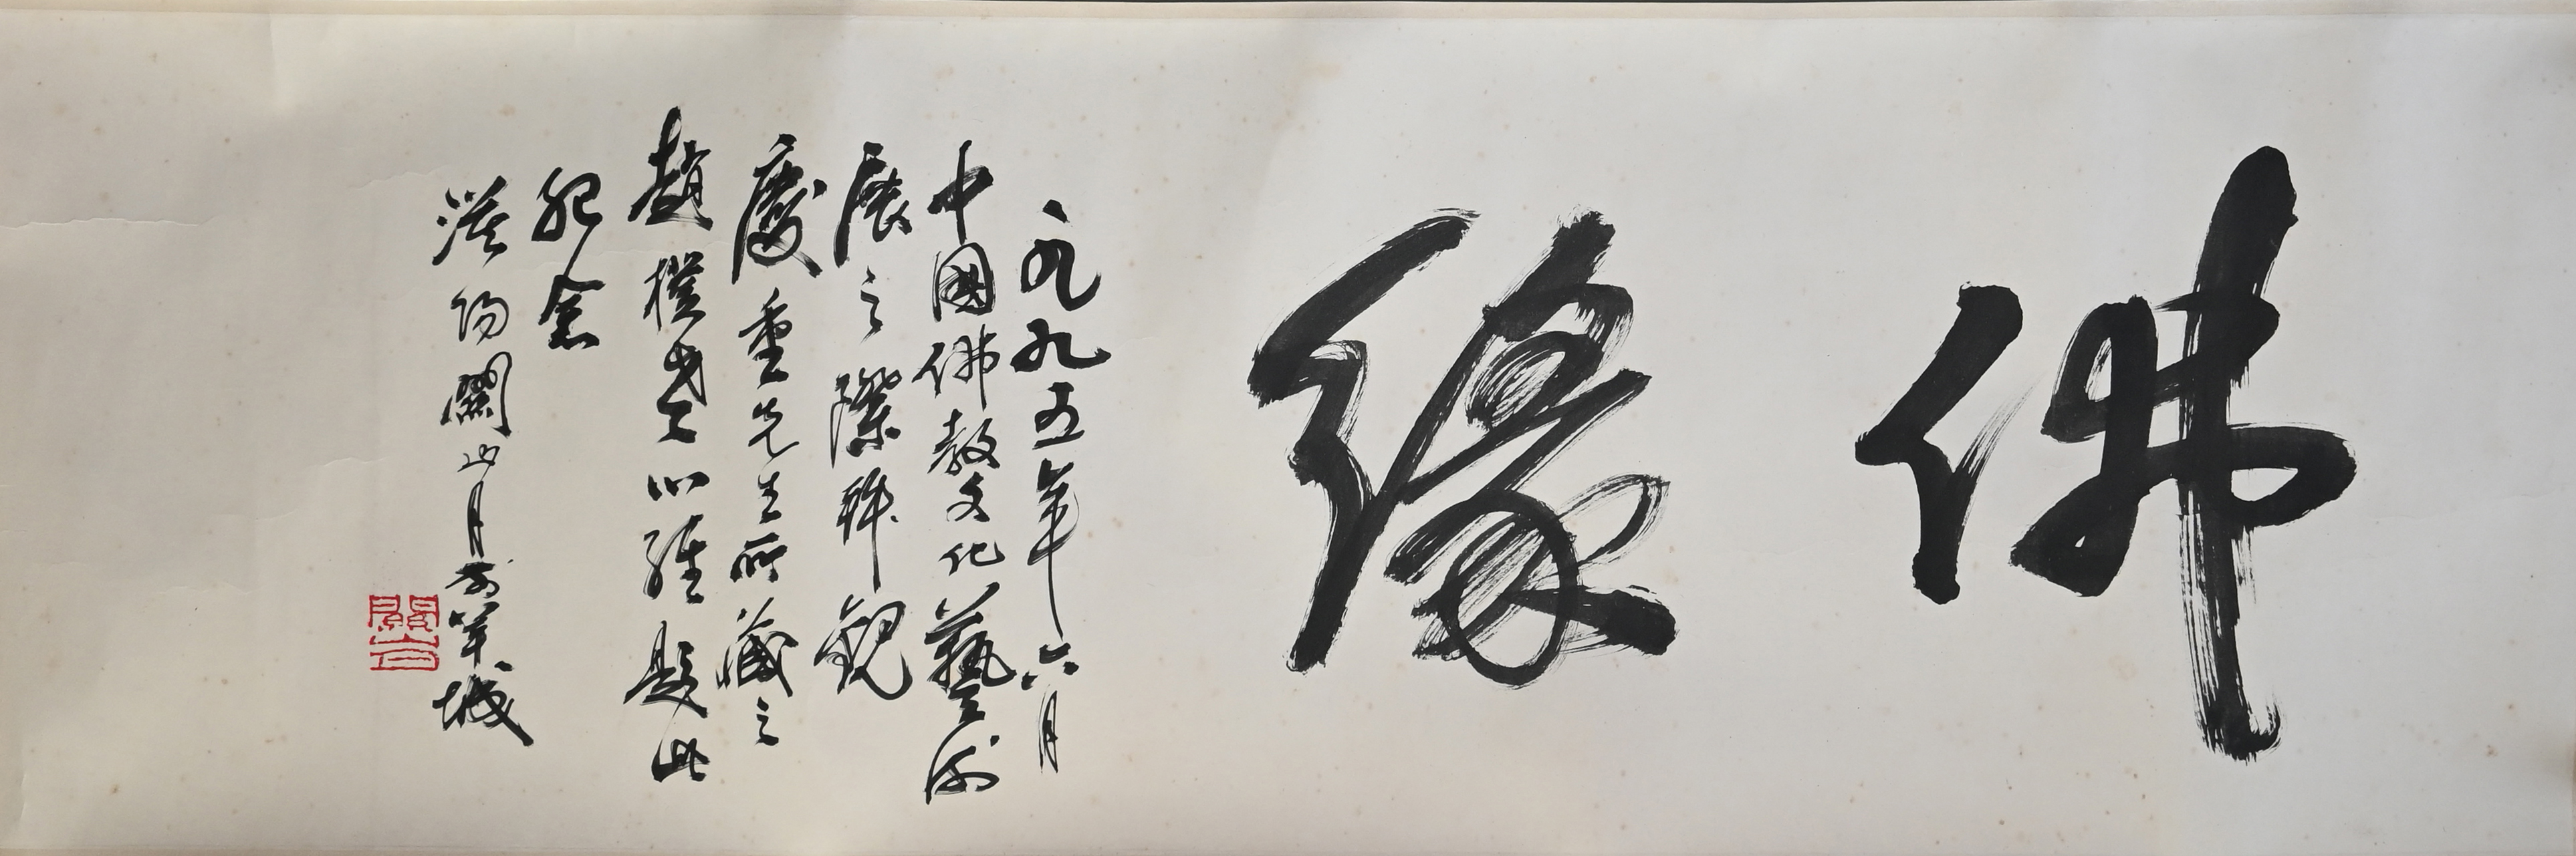 佛緣
一九九五年六月
中國佛教文化藝術
展之際拜觀
慶重先生所藏之
趙樸老心經題此
紀念
漠陽關山月於羊城
關山月